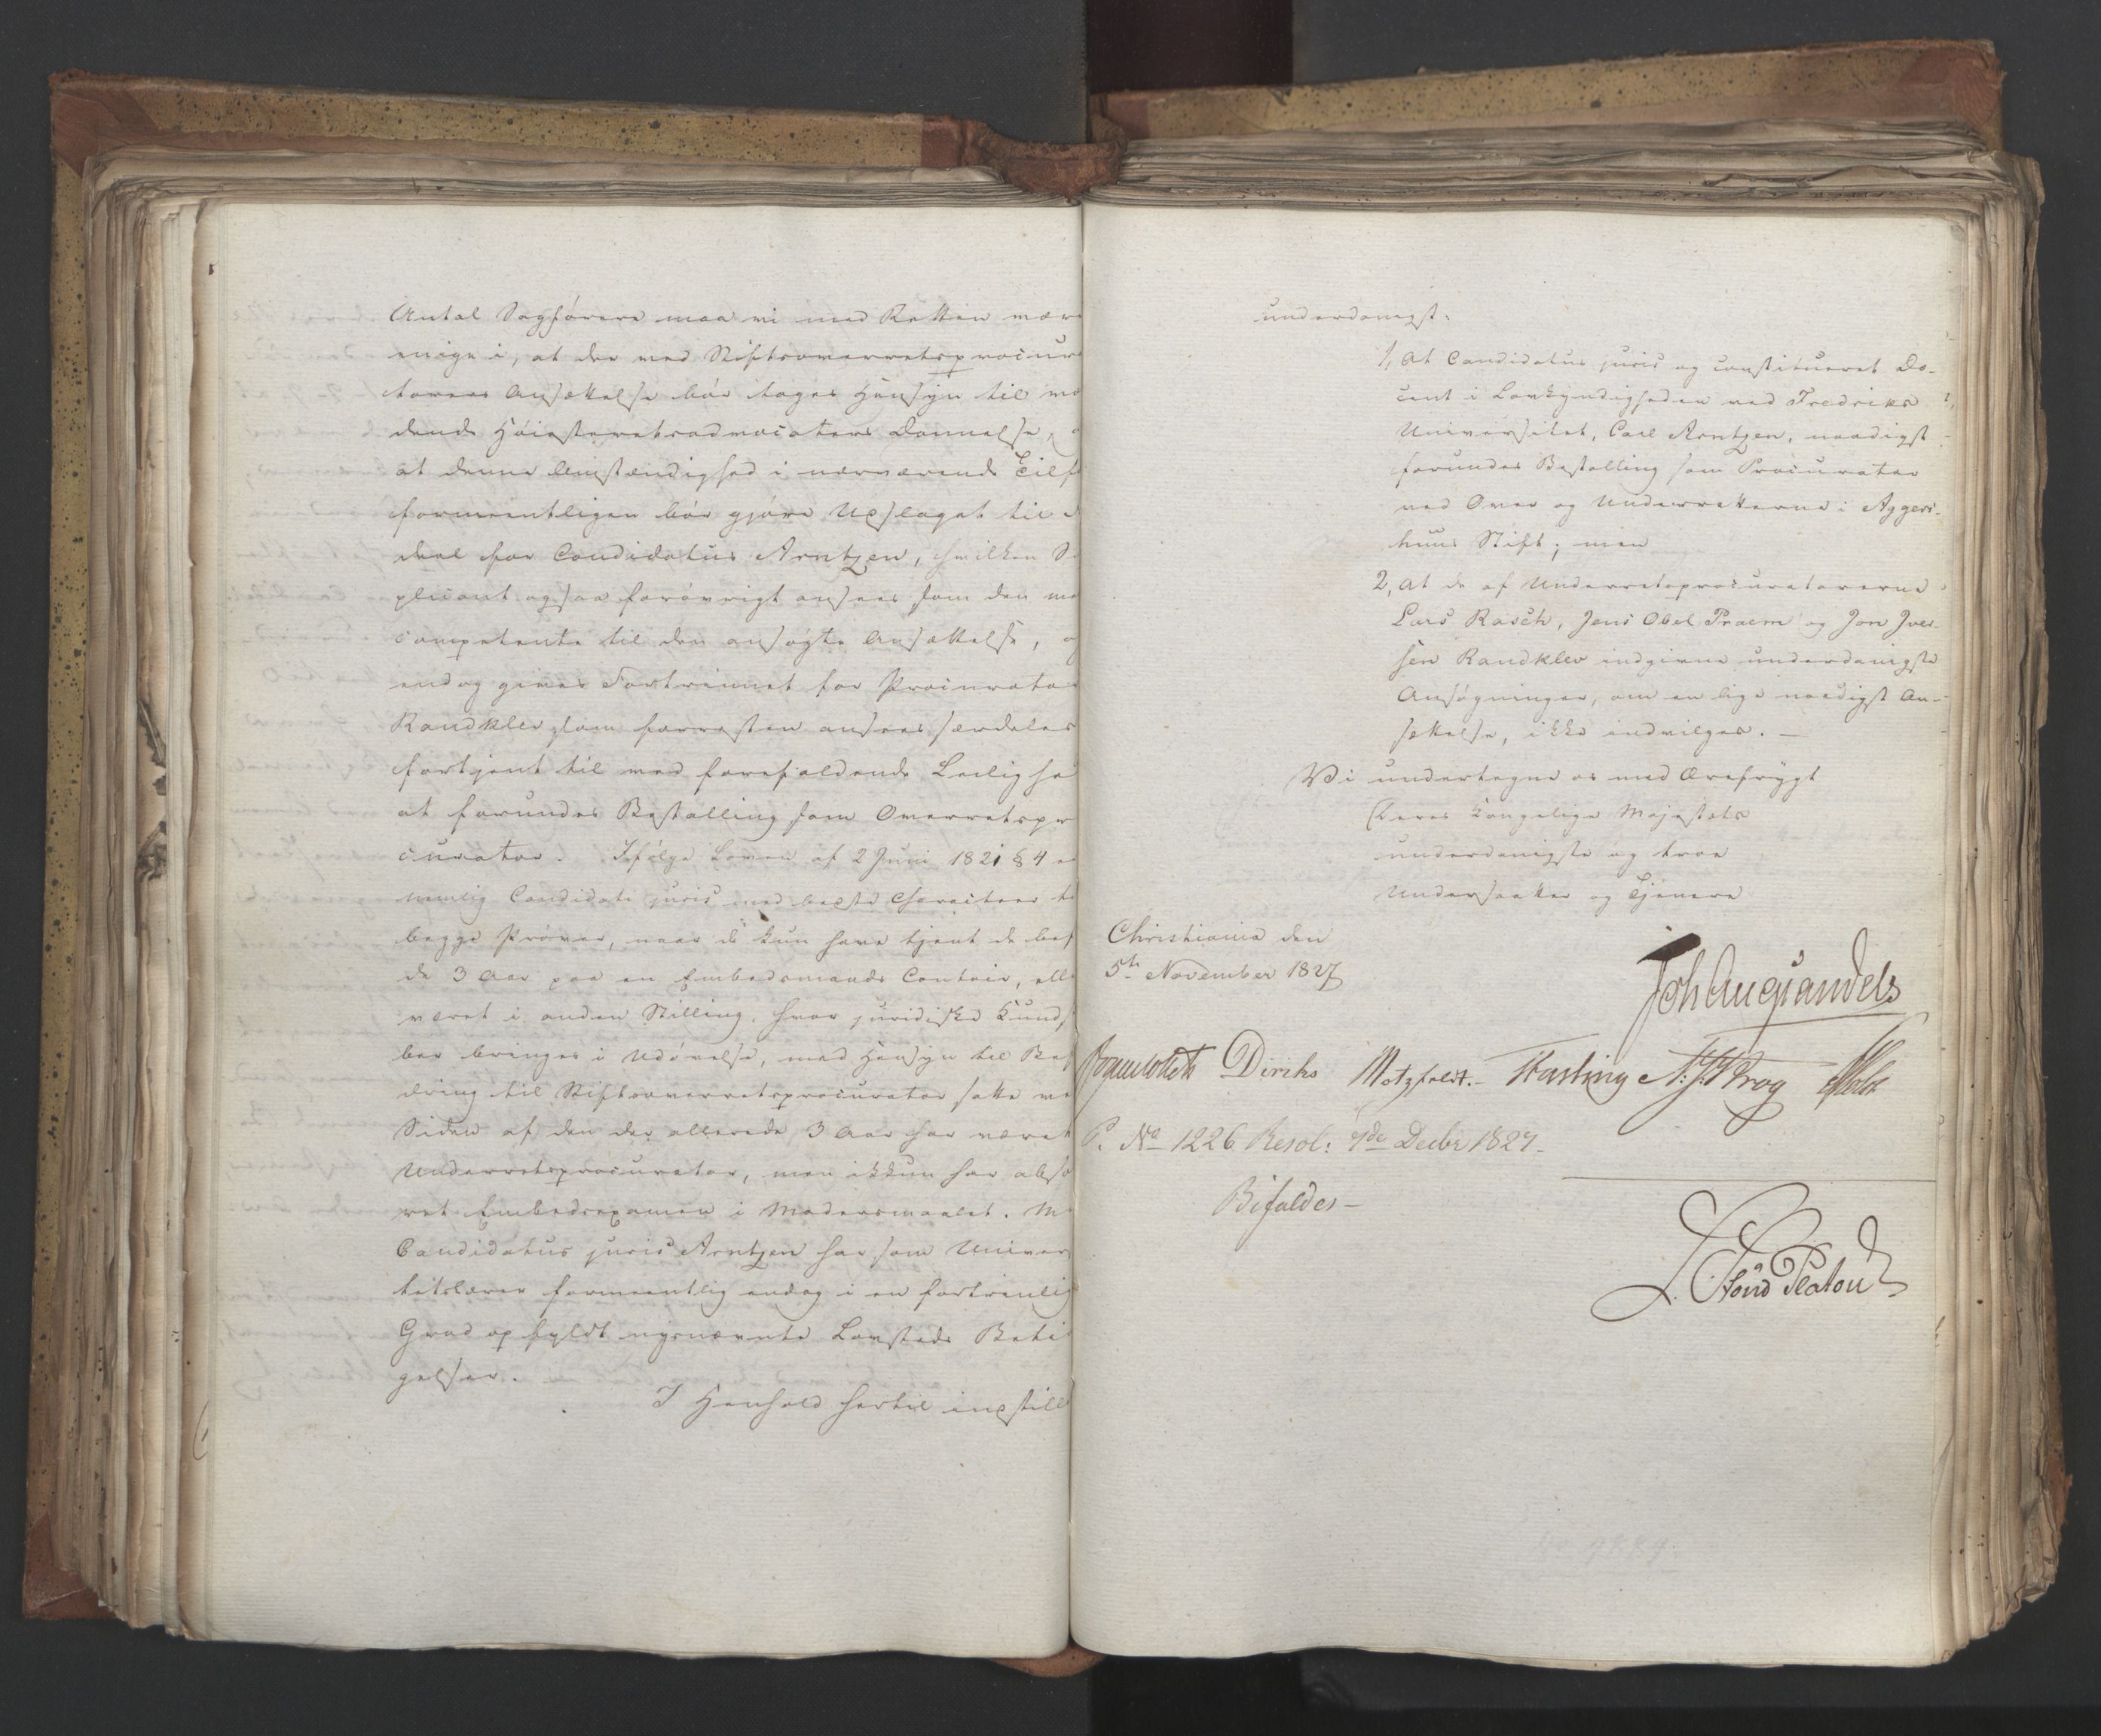 Antal Sagførere maa vi med Retten være
enige i, at der ved Stiftsoverretsprocura
torers Ansættelse bør tages Hensyn til vor
dende Høiesteretsadvocaters Dannelse, o
at denne Omstændighed i nærværende Tilf
formeentligen bør gjøre Udslaget til
deel for Candidatus Arntzen, hvilken Su
plicant ogsaa forøvrigt ansees som den me
competente til den ansøgte Ansættelse, og
endog gives Fortrinnet for Procurator
Randklev, som forresten ansees særdeles
fortjent til ved forefaldende Leilighe
at forundes Bestalling som Overretspr
curator. Ifølge Loven af 2 Juni 1821 § 4 er
nemlig Candidati juris med bedste Characteer
begge Prøver, naar de kun have tjent de
de 3 Aar paa en Embedsmands Contoir, elle
været i anden Stilling, hvor juridiske Kunds
ber bringes i Udøvelse, med Hensyn til Bef
dring til Stiftsoverretsprocurator satte ve
Siden af den der allerede 3 Aar har været
Underretsprocurator, men ikkun har abso
ret Embedsexamen i Modersmaalet. M
Candidatus juris Arntzen har som Univer
tetslærer formeentlig endog i en fortrinlig
Grad opfyldt nysnævnte Lovsteds Beti
gelser.
I Henhold hertil indstill
underdanigst:
1, At Candidatus juris og constitueret Do-
cent i Lovkyndigheden ved Fredriks
Universitet, Carl Arntzen, naadigst
forundes Bestalling som Procurator
ved Over og Underretterne i Aggers-
huus Stift; men
2, At de af Underretsprocuratorerne
Lars Rasch, Jens Obel Praem og Jon Iver-
sen Randklev indgivne underdanigste
Ansøgninger, om en lige naadigst An-
sættelse, ikke indvilges. —
Vi undertegne os med Ærefrygt
Deres Kongelige Majestæts
underdanigste og troe
Undersaatter og Tjenere
Christiania den
5te November 1827
Joh Aug Sandels
Diriks Motzfeldt. Fasting Krog Holst
P. No 1226 Resol: 7de Decbr 1827.
Bifaldes —
Lövenskiold Platou